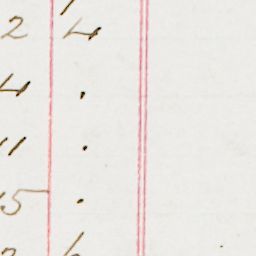 2 4
4 .
11 .
15 .